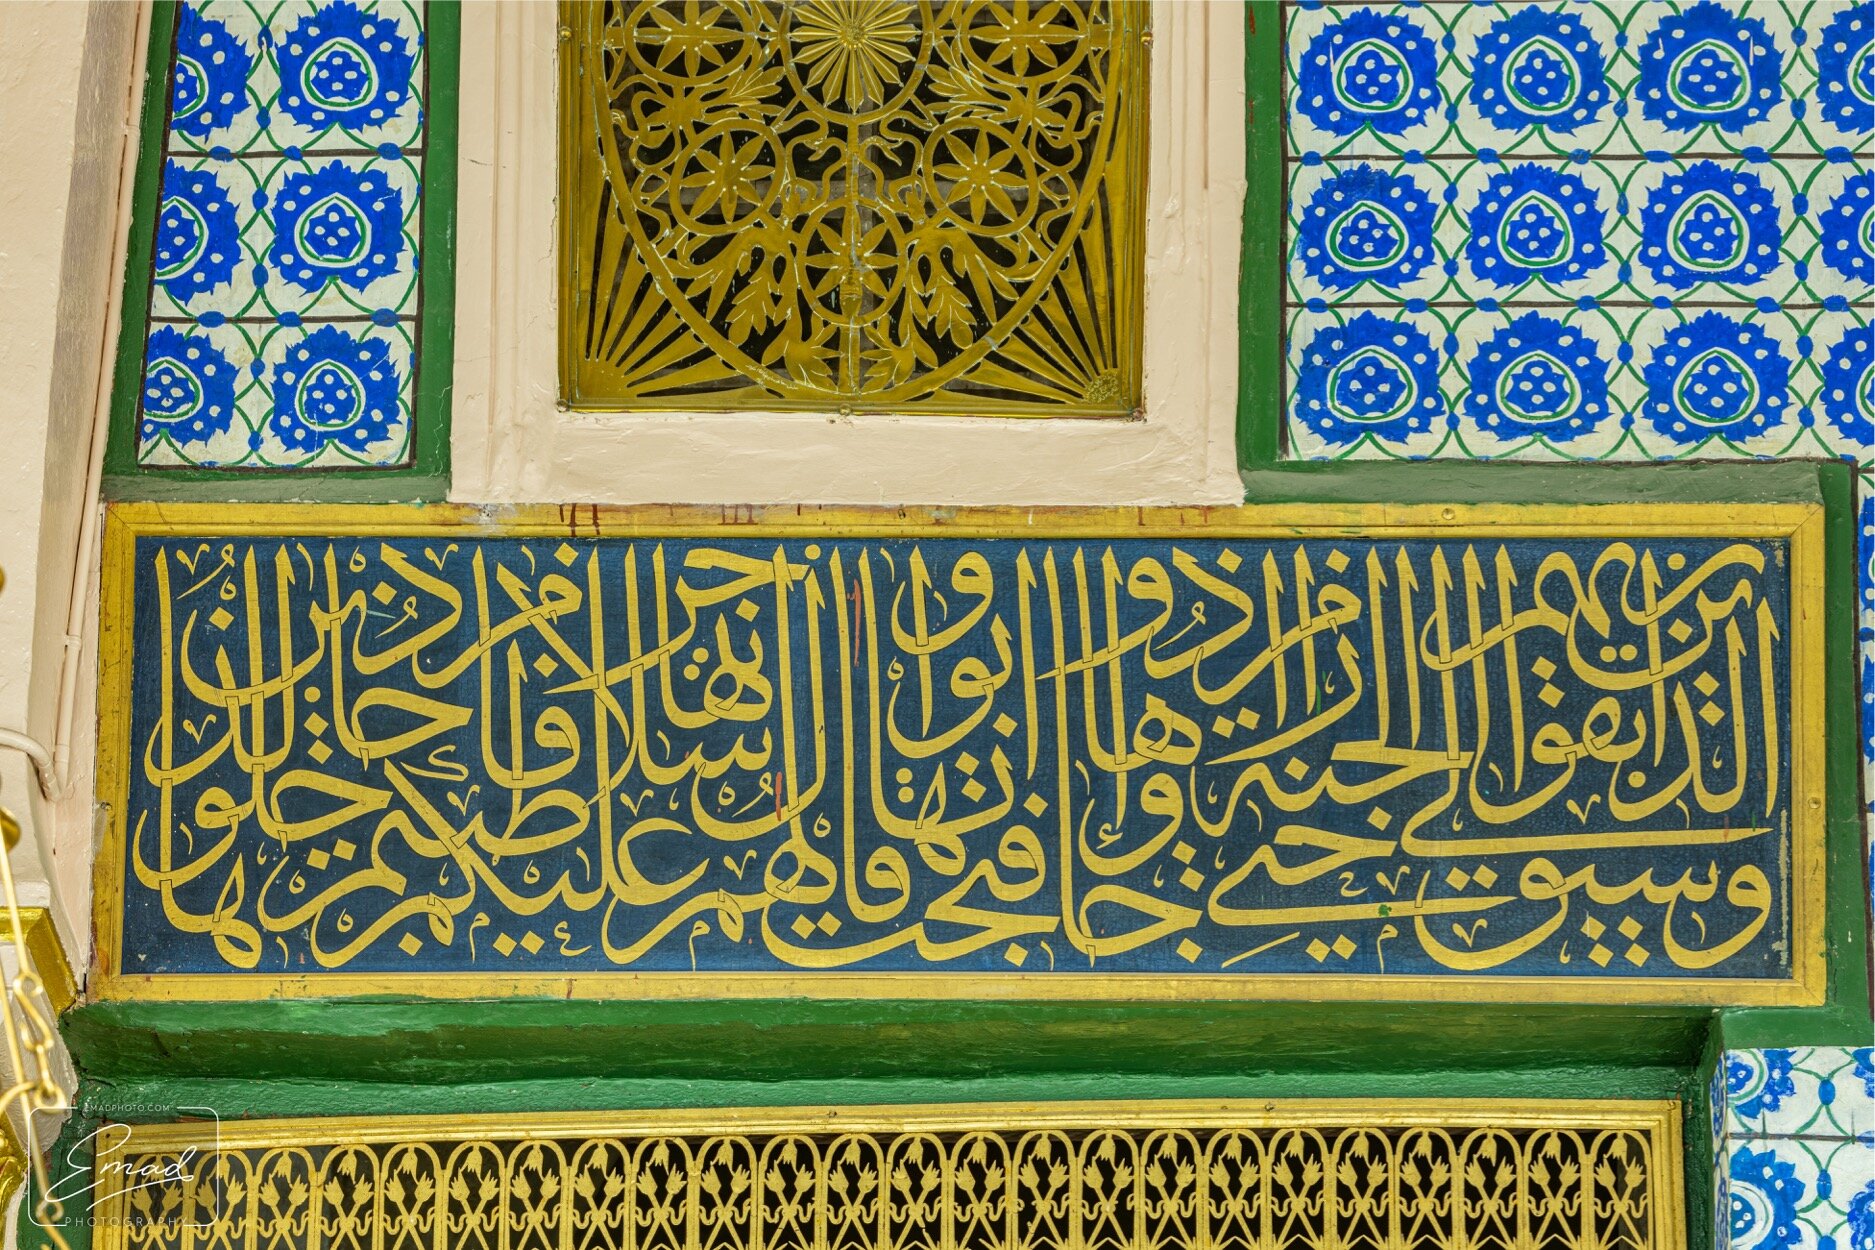 وسيق الذين اتقوا ربهم إلى الجنة زمرا حتى إذا جاؤها وفتحت أبوابها وقال لهم خزنتها سلام عليكم طبتم فادخلوها خالدين
EMADPHOTO.COM
Emad
PHOTOGRAPHY